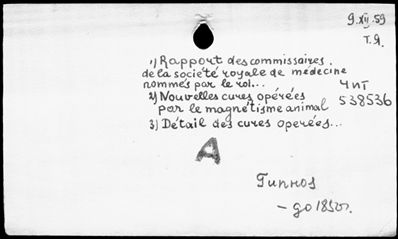 9.XII.59
Т.Я.
1) Rapport des commissaires
de la société royale de médecine
nommés par le roi...
2) Nouvelles cures opérées
par le magnétisme animal
3) Détail des cures operées...
ЧИТ
538536
A
Гипноз
– до 1850г.